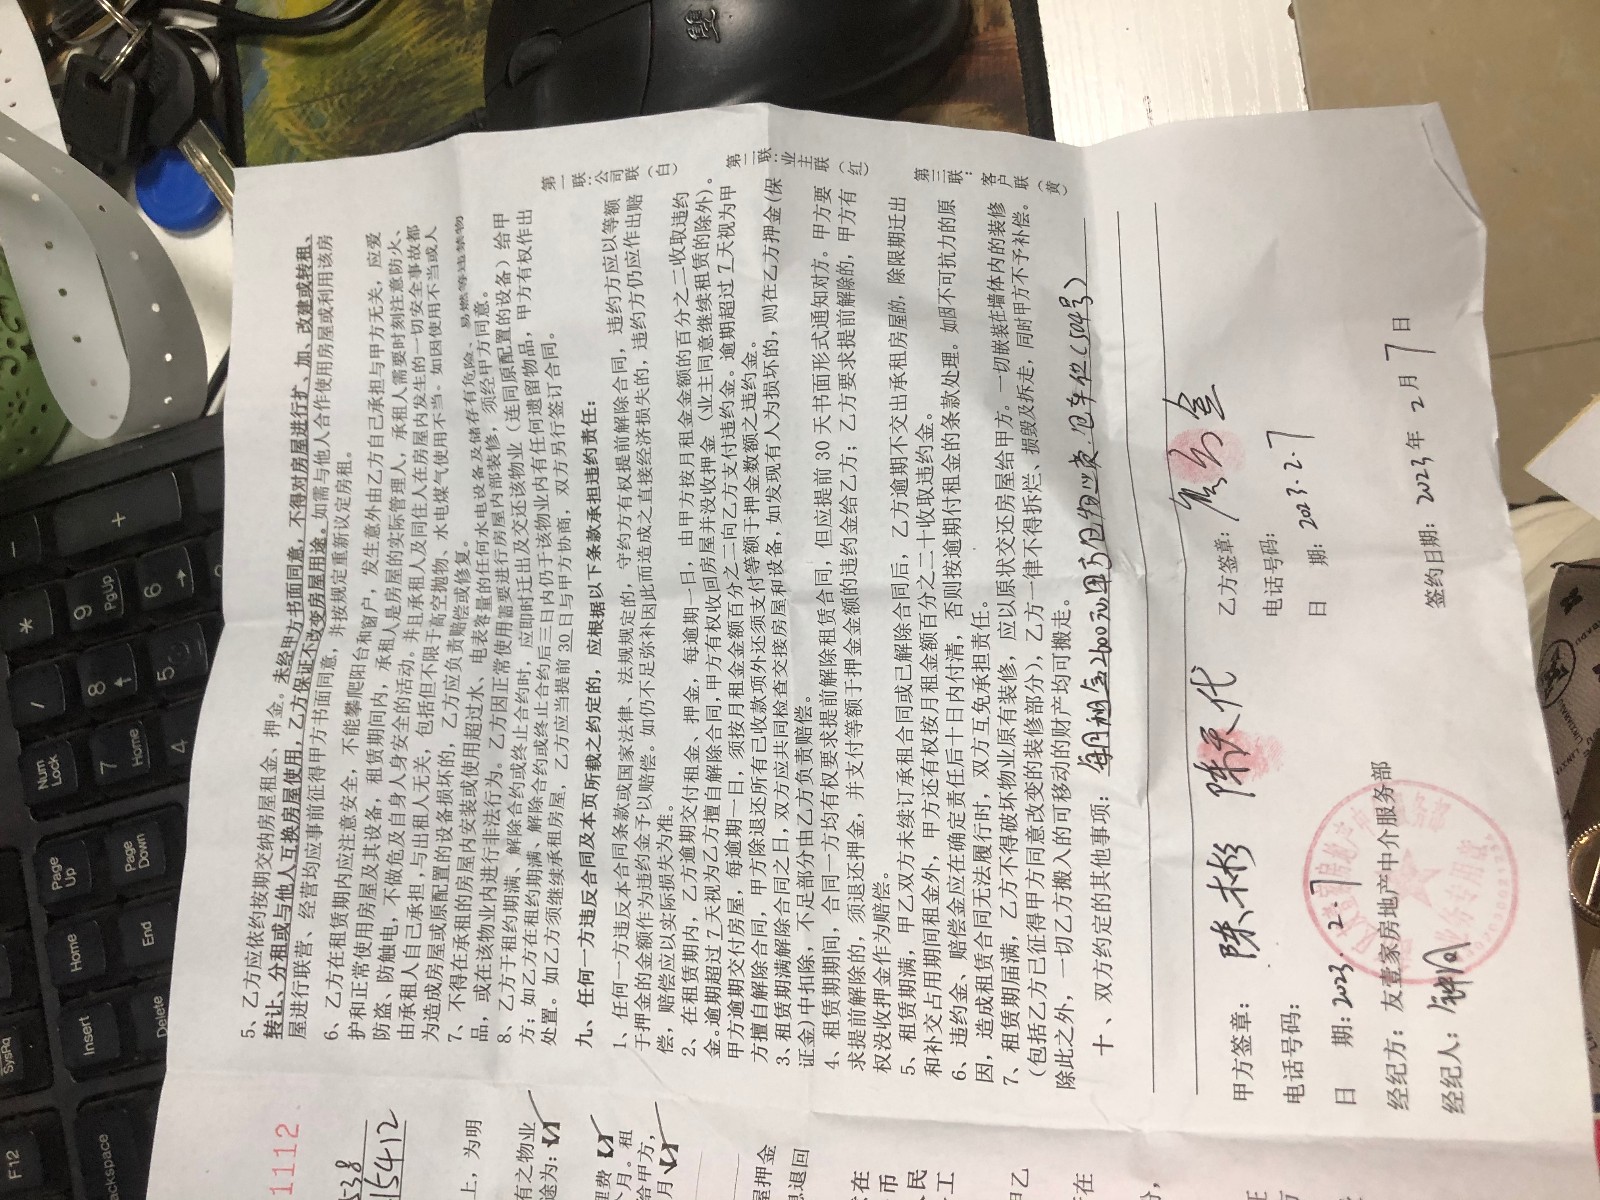 5、乙方应依约按期交纳房屋租金、押金。未经甲方书面同意，不得对房屋进行扩、加、改建或转租、
转让、分租或与他人互换房屋使用，乙方保证不改变房屋用途。如需与他人合作使用房屋或利用该房
屋进行联营、经营均应事前征得甲方书面同意，并按规定重新议定房租。
6、乙方在租赁期内应注意安全，不能攀爬阳台和窗户，发生意外由乙方自己承担与甲方无关，应爱
护和正常使用房屋及其设备，租赁期间内，承租人是房屋的实际管理人，承租人需要时刻注意防火、
防盗、防触电，不做危及自身人身安全的活动。并且承租人及同住人在房屋内发生的一切安全事故都
由承租人自己承担，与出租人无关，包括但不限于高空抛物、水电煤气使用不当。如因使用不当或人
为造成房屋或原配置的设备损坏的，乙方应负责赔偿或修复。
7、不得在承租的房屋内安装或使用超过水、电表容量的任何水电设备及储存有危险、易燃等违禁物
品，或在该物业内进行非法行为。乙方因正常使用需要进行房屋内部装修，须经甲方同意。
8、乙方于租约期满、解除合约或终止合约时，应即时迁出及交还该物业（连同原配置的设备）给甲
方；如乙方在租约期满、解除合约或终止合约后三日内仍于该物业内有任何遗留物品，甲方有权作出
处置。如乙方须继续承租房屋，乙方应当提前30日与甲方协商，双方另行签订合同。
九、任何一方违反合同及本页所载之约定的，应根据以下条款承担违约责任：
1、任何一方违反本合同条款或国家法律、法规规定的，守约方有权提前解除合同，违约方应以等额
于押金的金额作为违约金予以赔偿。如仍不足弥补因此而造成之直接经济损失的，违约方仍应作出赔
偿，赔偿应以实际损失为准。
2、在租赁期内，乙方逾期交付租金、押金，每逾期一日，由甲方按月租金金额的百分之二收取违约
金。逾期超过7天视为乙方擅自解除合同，甲方有权收回房屋并没收押金（业主同意继续租赁的除外）。
甲方逾期交付房屋，每逾期一日，须按月租金金额百分之二向乙方支付违约金。逾期超过7天视为甲
方擅自解除合同，甲方除退还所有已收款项外还须支付等额于押金数额之违约金。
3、租赁期满解除合同之日，双方应共同检查交接房屋和设备，如发现有人为损坏的，则在乙方押金(保
证金)中扣除，不足部分由乙方负责赔偿。
4、租赁期期间，合同一方均有权要求提前解除租赁合同，但应提前30天书面形式通知对方。甲方要
求提前解除的，须退还押金，并支付等额于押金金额的违约金给乙方；乙方要求提前解除的，甲方有
权没收押金作为赔偿。
5、租赁期满，甲乙双方未续订承租合同或已解除合同后，乙方逾期不交出承租房屋的，除限期迁出
和补交占用期间租金外，甲方还有权按月租金额百分之二十收取违约金。
6、违约金、赔偿金应在确定责任后十日内付清，否则按逾期付租金的条款处理。如因不可抗力的原
因，造成租赁合同无法履行时，双方互免承担责任。
7、租赁期届满，乙方不得破坏物业原有装修，应以原状交还房屋给甲方。一切嵌装在墙体内的装修
(包括乙方已征得甲方同意改变的装修部分)，乙方一律不得拆烂、损毁及拆走，同时甲方不予补偿。
除此之外，一切乙方搬入的可移动的财产均可搬走。
十、双方约定的其他事项：每月租金2600元
甲方签章：陈彬
乙方签章：
电话号码：
电话号码：
日 期：2023.2.7
日 期：2023.2.7
经纪方：友壹家房地产中介服务部
经纪人：
签约日期：2023年2月7日
第一联：公司联（白）
第二联：业主联（红）
第三联：客户联（黄）
1112
538
15412
上，为明
有之物业
途为：
理费
个月。租
给甲方，
月
屋押金
退回
在
币
民
工
甲乙
在
Num Lock
7 Home
8
9 PgUp
4
5
6
Page Up
Page Down
Home
End
Insert
Delete
SysRq
F12
ackspace